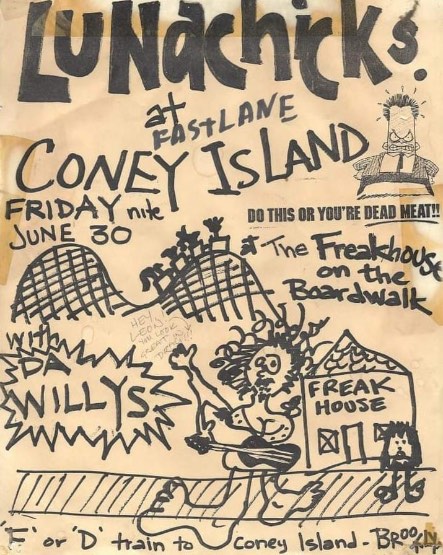 LUNachicks.
at
FASTLANE
CONEY ISLAND
FRIDAY nite
JUNE 30
DO THIS OR YOU'RE DEAD MEAT!!
at The Freakhouse
on the
Boardwalk
HEY
LEON
YOU LOOK
GREAT IN
with
DA
WILLYS
FREAK
HOUSE
'F' or 'D' train to Coney Island - BROOKLYN